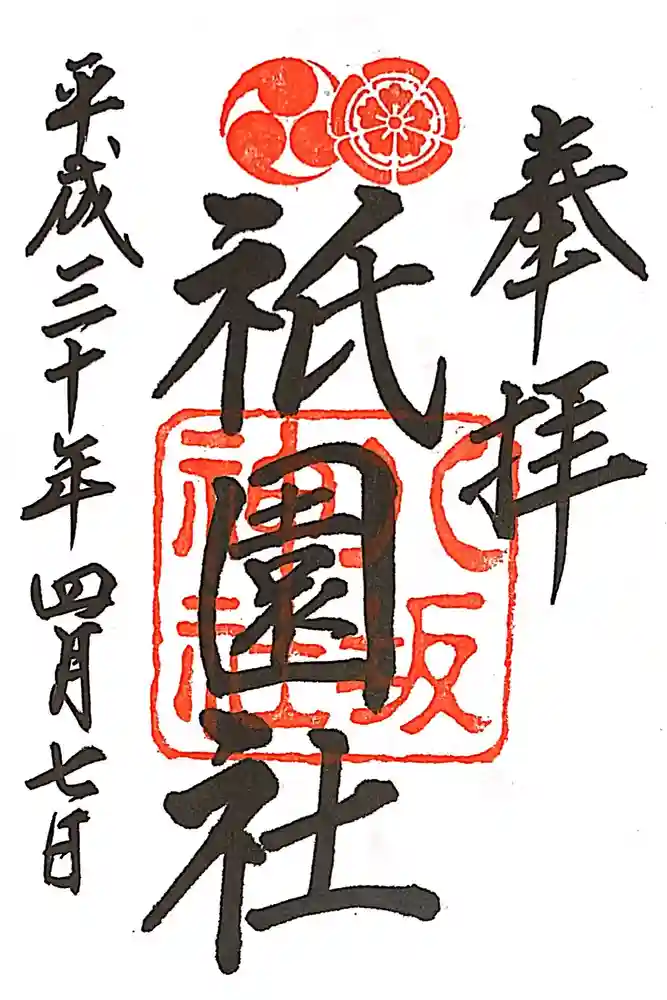 奉拝
祇園社
八坂神社
平成三十年四月七日